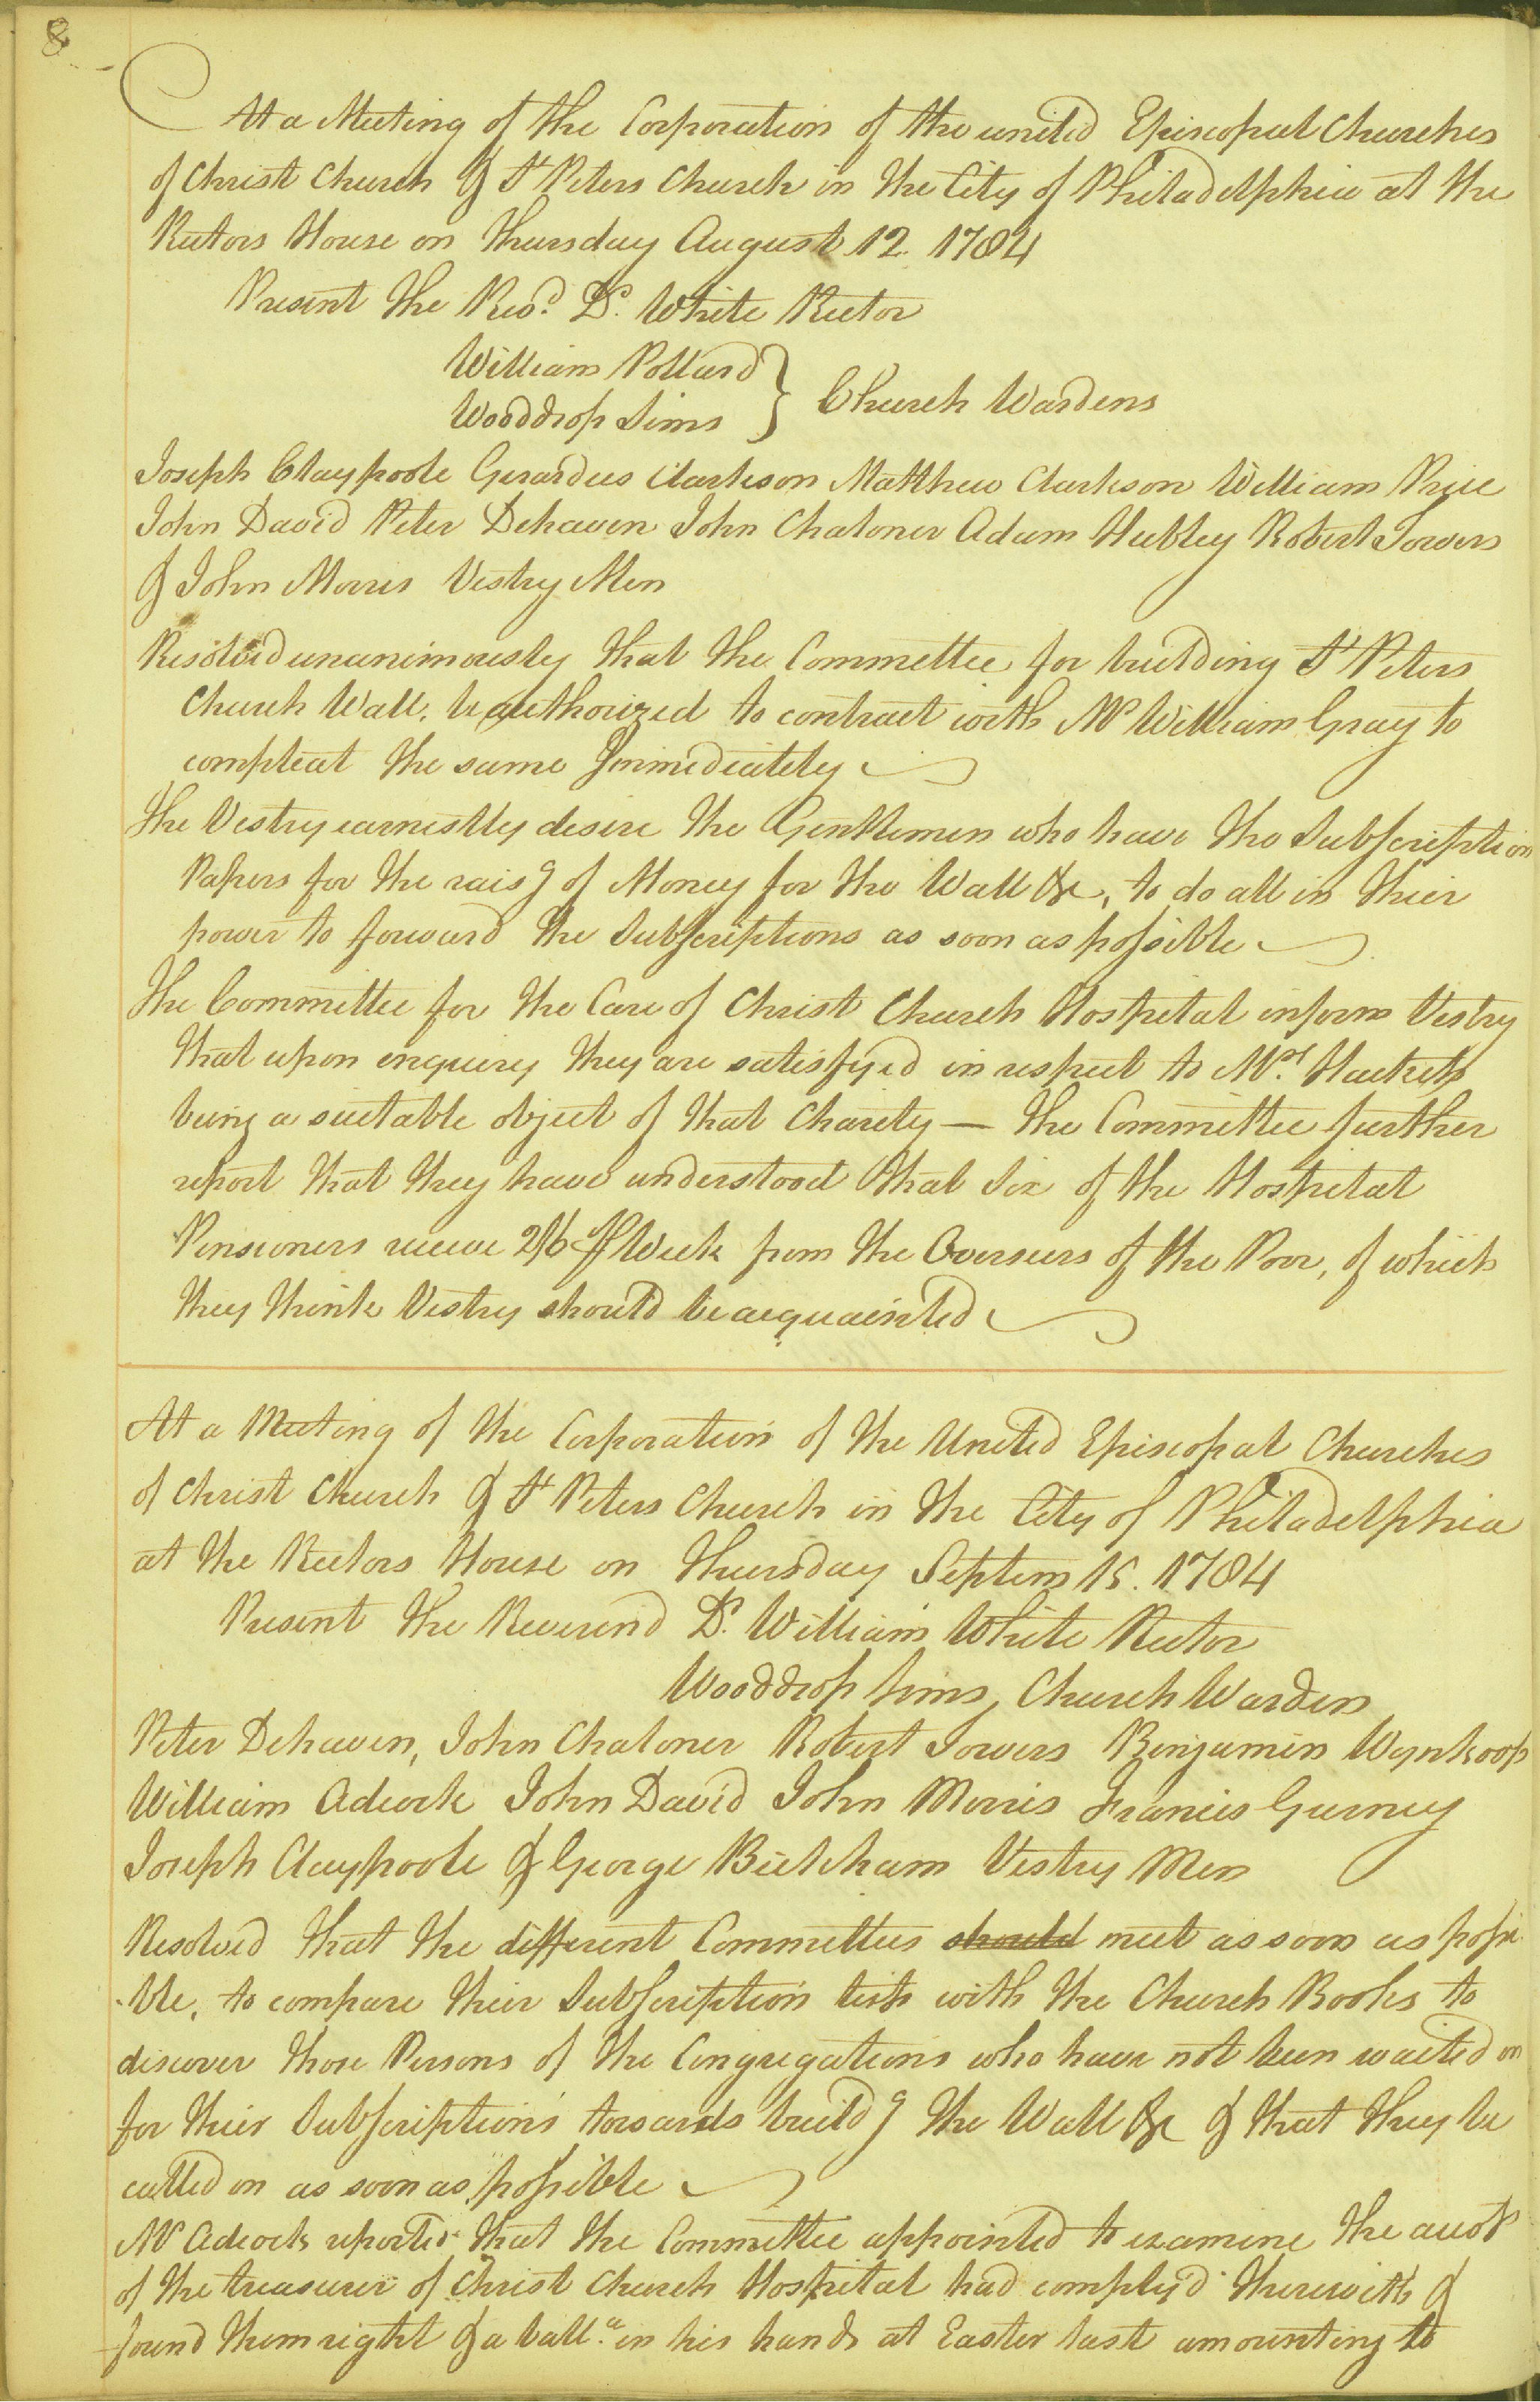 8
At a Meeting of the Corporation of the united Episcopal Churches
of Christ Church & St Peters Church in the City of Philadelphia at the
Rectors House on Thursday August 12. 1784
Present the Revd. Dr. White Rector
William Pollard
Wooddrop Sims } Church Wardens
Joseph Claypoole Gerardus Clarkson Matthew Clarkson William Price
John David Peter Dehaven John Chaloner Adam Hubley Robert Towers
& John Morris Vestry Men
Resolved unanimously that the Committee for building St Peters
Church Wall, be authorized to contract with Mr William Gray to
compleat the same Immediately
The Vestry earnestly desire the Gentlemen who have the Subscription
Papers for the raisg of Money for the Wall &c, to do all in their
power to forward the Subscriptions as soon as possible
The Committee for the Care of Christ Church Hospital inform Vestry
that upon enquiry they are satisfyed in respect to Mrs. Hackets
being a suitable object of that Charity — the Committee further
report that they have understood that Six of the Hospital
Pensioners receive 2/6 ⅌ Week from the Overseers of the Poor, of which
they think Vestry should be acquainted
At a Meeting of the Corporation of the United Episcopal Churches
of Christ Church & St Peters Church in the City of Philadelphia
at the Rectors House on Thursday Septem 15. 1784
Present the Reverend Dr. William White Rector
Wooddrop Sims, Church Warden
Peter Dehaven, John Chaloner Robert Towers Benjamin Wynkoop
William Adcock John David John Morris Francis Gurney
Joseph Claypoole & George Bickham Vestry Men
Resolved that the different Committees should meet as soon as possi
-ble, to compare their Subscription lists with the Church Books to
discover those Persons of the Congregations who have not been waited on
for their Subscriptions towards buildg the Wall &c & that they be
called on as soon as possible
Mr Adcock reported that the Committee appointed to examine the accots
of the treasurer of Christ Church Hospital had comply'd therewith &
found them right & a balla. in his hands at Easter last amounting to